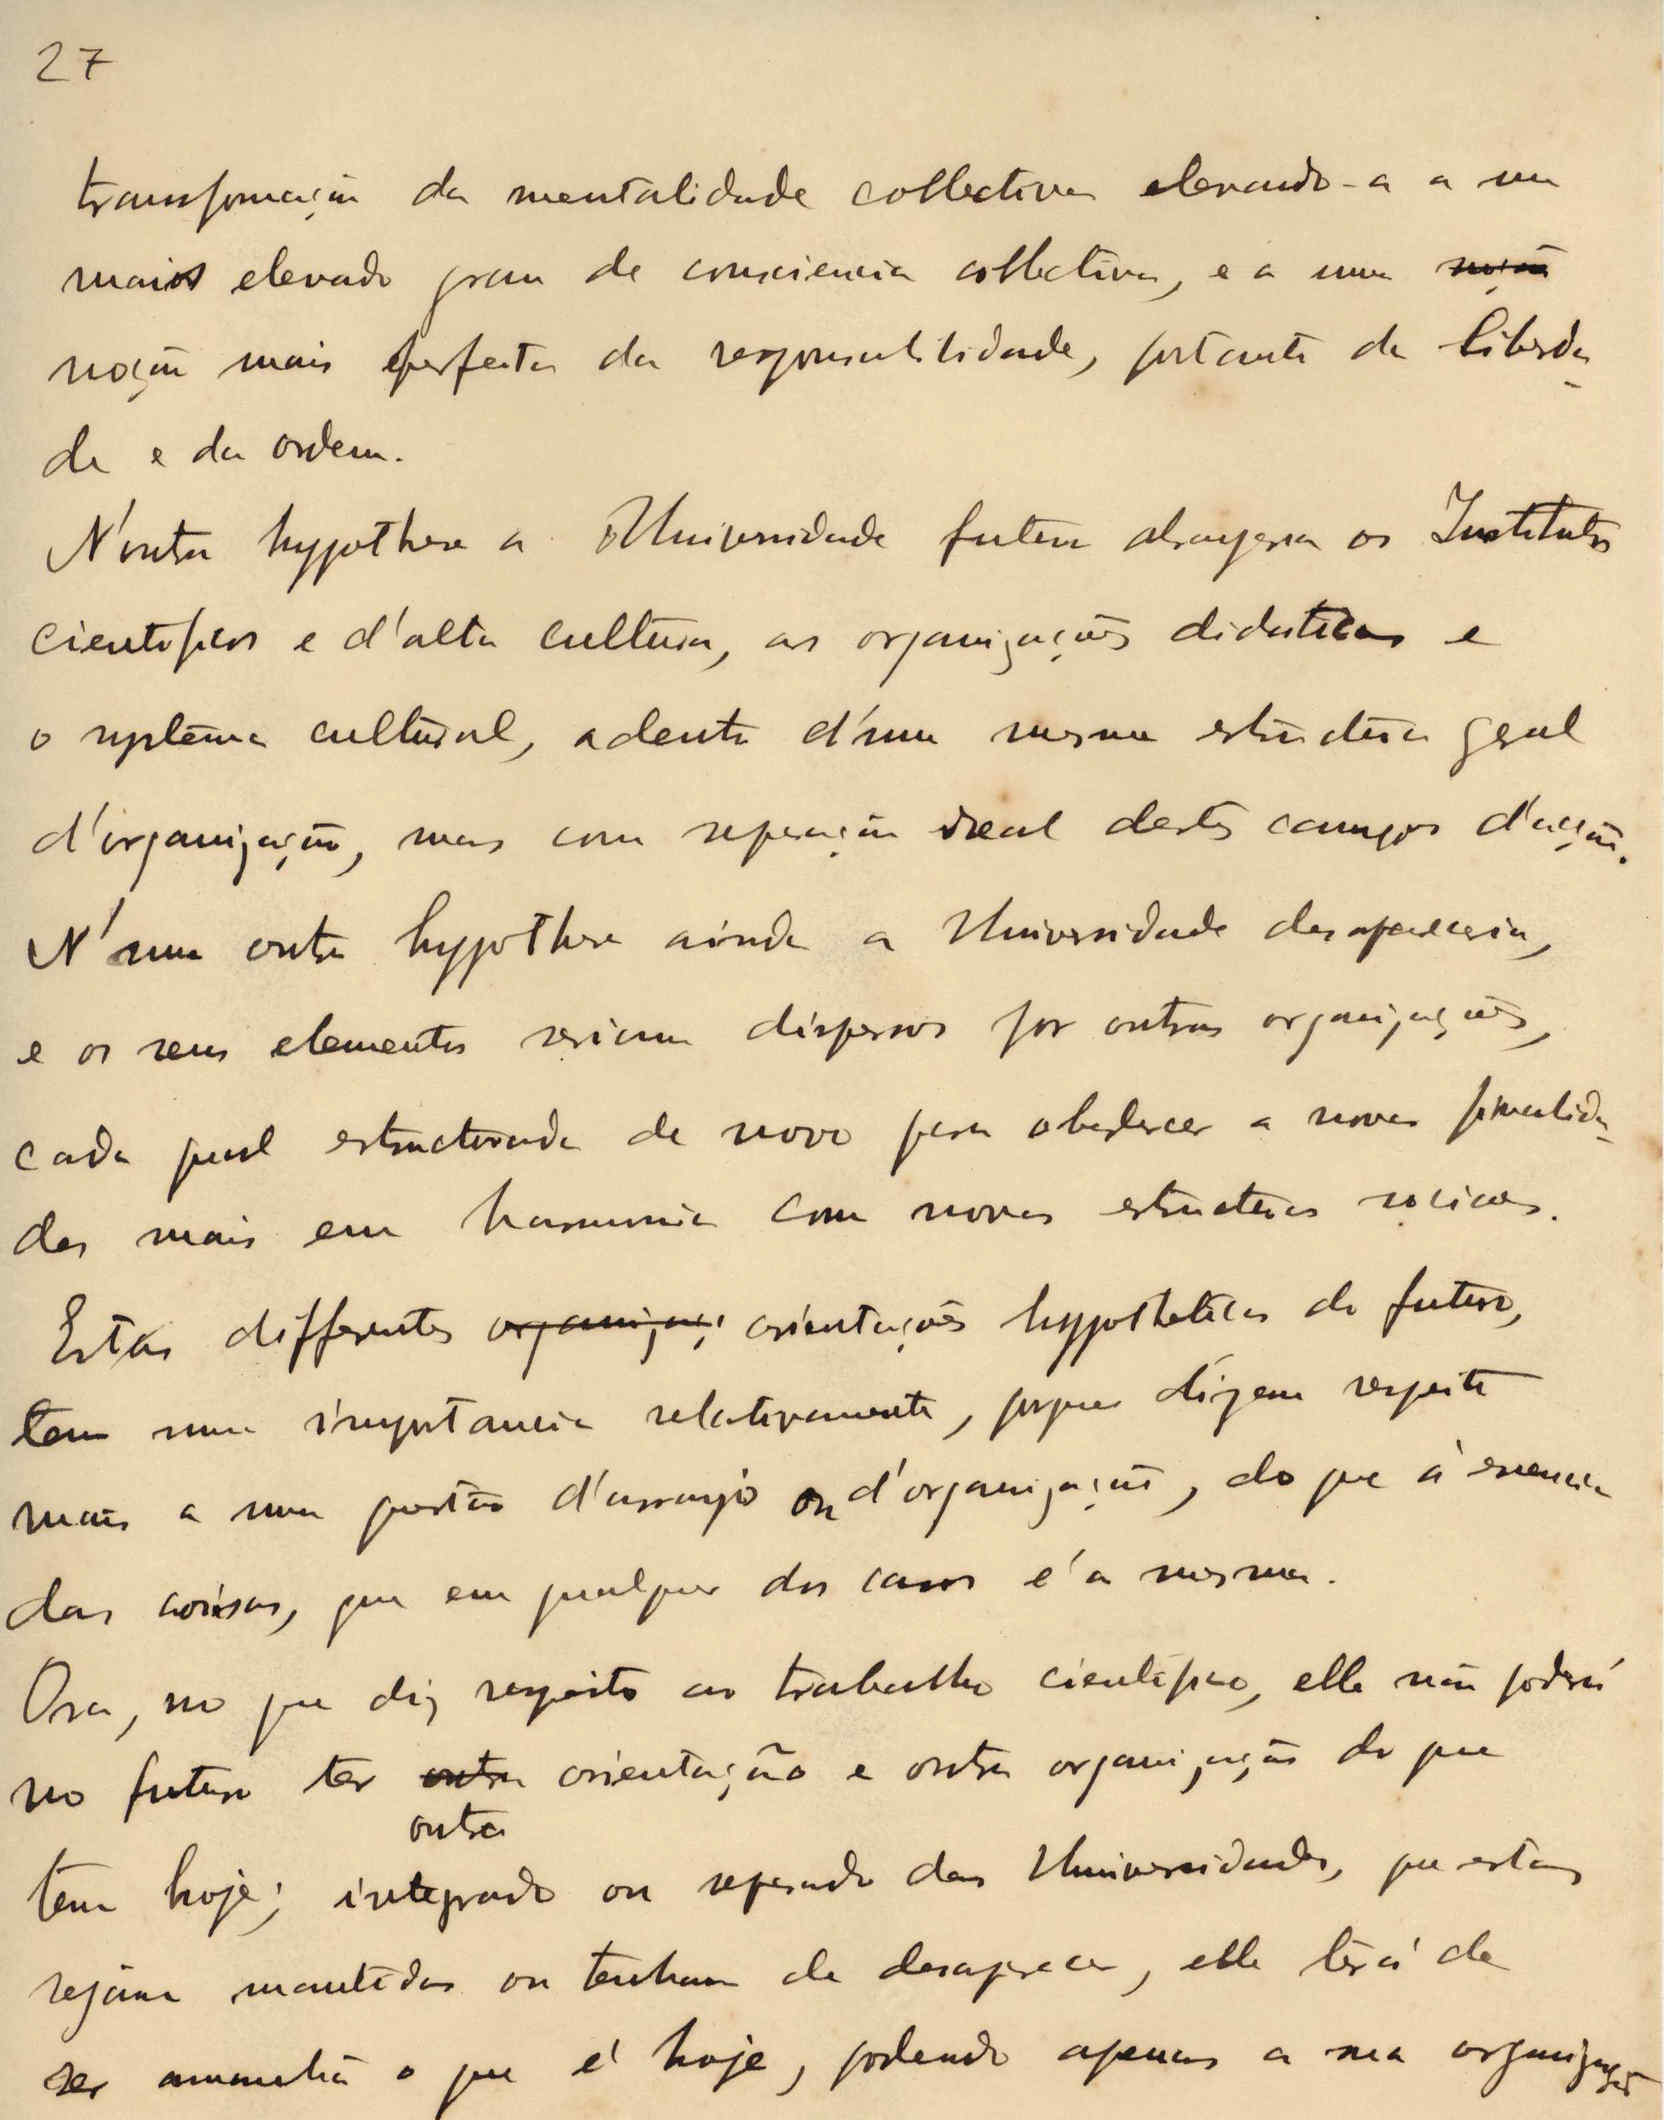 27
transformação da mentalidade collectiva elevando-a a um
mais elevado grau de consciencia collectiva, e a uma noção
noção mais perfeita da responsabilidade, portanto da liberda-
de e da ordem.
N'outra hypothese a Universidade futura abrangeria os Institutos
cientificos e d'alta cultura, as organizações didaticas e
o systema cultural, adentro d'uma mesma estructura geral
d'organização, mas com separação real destes campos d'acção.
N'uma outra hypothese ainda a Universidade desapareceria,
e os seus elementos seriam dispersos por outras organizações,
cada qual estructurada de novo para obedecer a novas finalida-
des mais em harmonia com novas estructuras sociaes.
Estas differentes organizaç orientações hypotheticas do futuro,
tem uma importancia relativamente, porque dizem respeito
mais a uma questão d'arranjo ou d'organização, do que á essencia
das coisas, que em qualquer dos casos é a mesma.
Ora, no que diz respeito ao trabalho cientifico, elle não poderá
no futuro ter outra orientação e outra organização do que
outra
tem hoje; integrado ou separado das Universidades, que estas
sejam mantidas ou tenham de desaparecer, elle terá de
ser amanhã o que é hoje, podendo apenas a sua organização